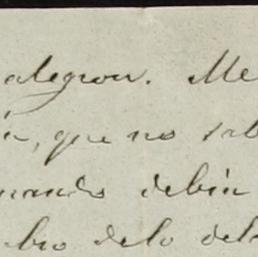 alegrou. Me
que no sab
mando debia
bro delo del